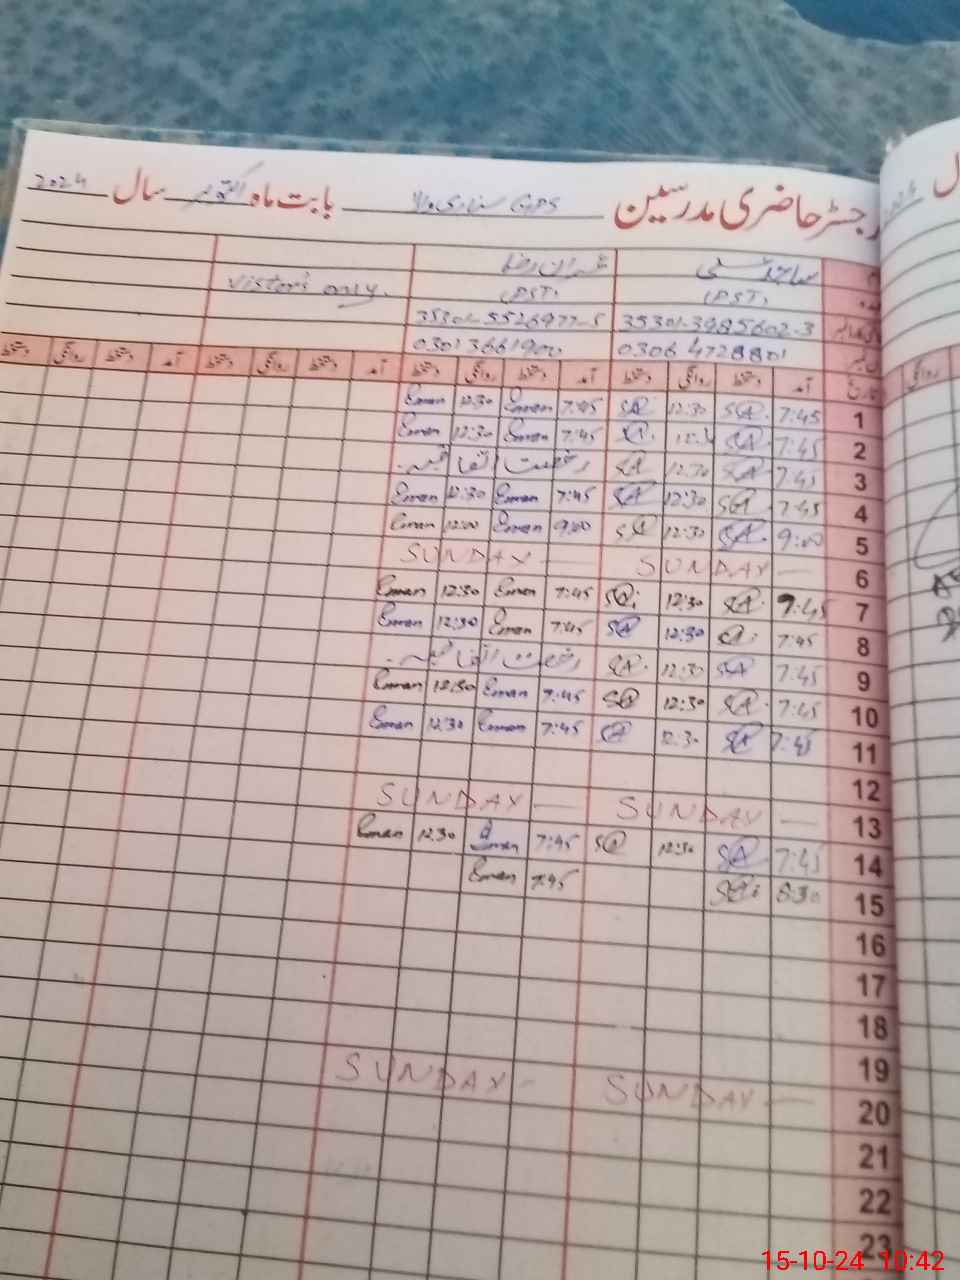 رجسٹر حاضری مدرسین GPS بابت ماہ اکتوبر سال 2024
Vistor's only.
(PST) (PST)
35301-3985602-3 35301-5526977-5
0306 4728801 0301 3661900
تاریخ آمد دستخط روانگی دستخط آمد دستخط روانگی دستخط آمد دستخط روانگی دستخط آمد دستخط روانگی دستخط
1 7:45 SA 12:30 SA 7:45 Eman 12:30 Eman
2 7:45 SA SA 7:45 Eman 12:30 Eman
3 7:45 SA 12:30 SA رخصت اتفاقیہ
4 7:45 SA 12:30 SA 7:45 Eman 12:30 Eman
5 9:00 SA 12:30 SA 9:00 Eman 12:00 Eman
6 SUNDAY SUNDAY
7 7:45 SA 12:30 SA 7:45 Eman 12:30 Eman
8 7:45 SA 12:30 SA 7:45 Eman 12:30 Eman
9 7:45 SA 12:30 SA رخصت اتفاقیہ
10 7:45 SA 12:30 SA 7:45 Eman 12:30 Eman
11 7:45 SA 12:30 SA 7:45 Eman 12:30 Eman
12
13 SUNDAY SUNDAY
14 7:45 SA 12:30 SA 7:45 Eman 12:30 Eman
15 8:30 SA 7:45 Eman
16
17
18
19
20 SUNDAY SUNDAY
21
22
23
15-10-24 10:42